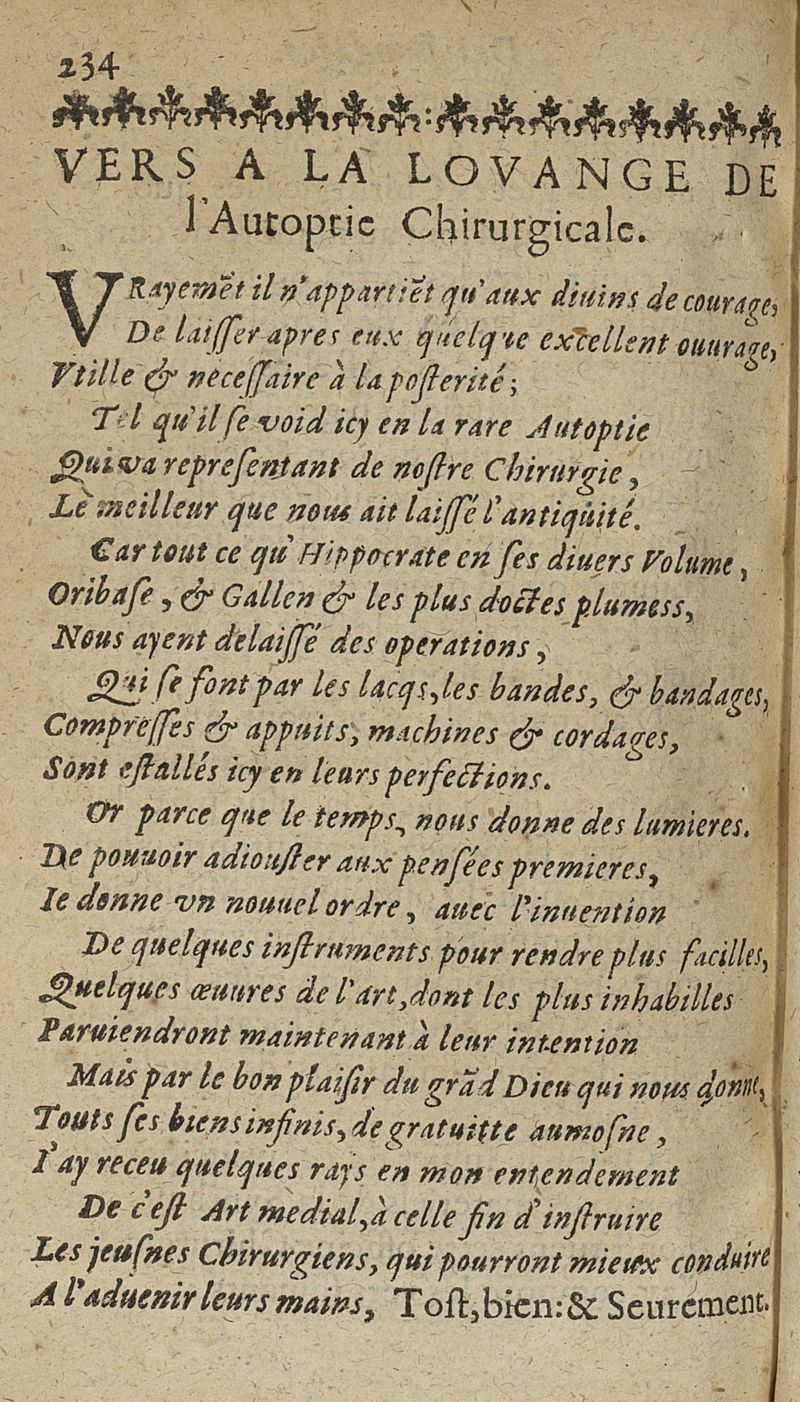 234
VERS A LA LOVANGE DE
l'Autoptic Chirurgicale.
VRayemēt il n'appartiēt qu'aux diuins de courage,
De laiſſer apres eux quelque excellent ouurage,
Vtille & neceſſaire à la poſterité;
Tel qu'il ſe void icy en la rare Autoptie
Qui va repreſentant de noſtre Chirurgie,
Le meilleur que nous ait laiſſé l'antiquité.
Car tout ce qu'Hippocrate en ſes diuers Volume,
Oribaſe, & Gallen & les plus doctes plumess,
Nous ayent delaiſſé des operations,
Qui ſe font par les lacqs, les bandes, & bandages,
Compreſſes & appuits, machines & cordages,
Sont eſtallés icy en leurs perfections.
Or parce que le temps, nous donne des lumieres.
De pouuoir adiouſter aux penſées premieres,
Ie donne vn nouuel ordre, auec l'inuention
De quelques inſtruments pour rendre plus facilles,
Quelques œuures de l'art, dont les plus inhabilles
Paruiendront maintenant à leur intention
Mais par le bon plaiſir du grād Dieu qui nous donne,
Touts ſes biens infinis, de gratuitte aumoſne,
I'ay receu quelques rays en mon entendement
De c'eſt Art medial, à celle fin d'inſtruire
Les jeuſnes Chirurgiens, qui pourront mieux conduire
A l'aduenir leurs mains, Toſt, bien: & Seurement.